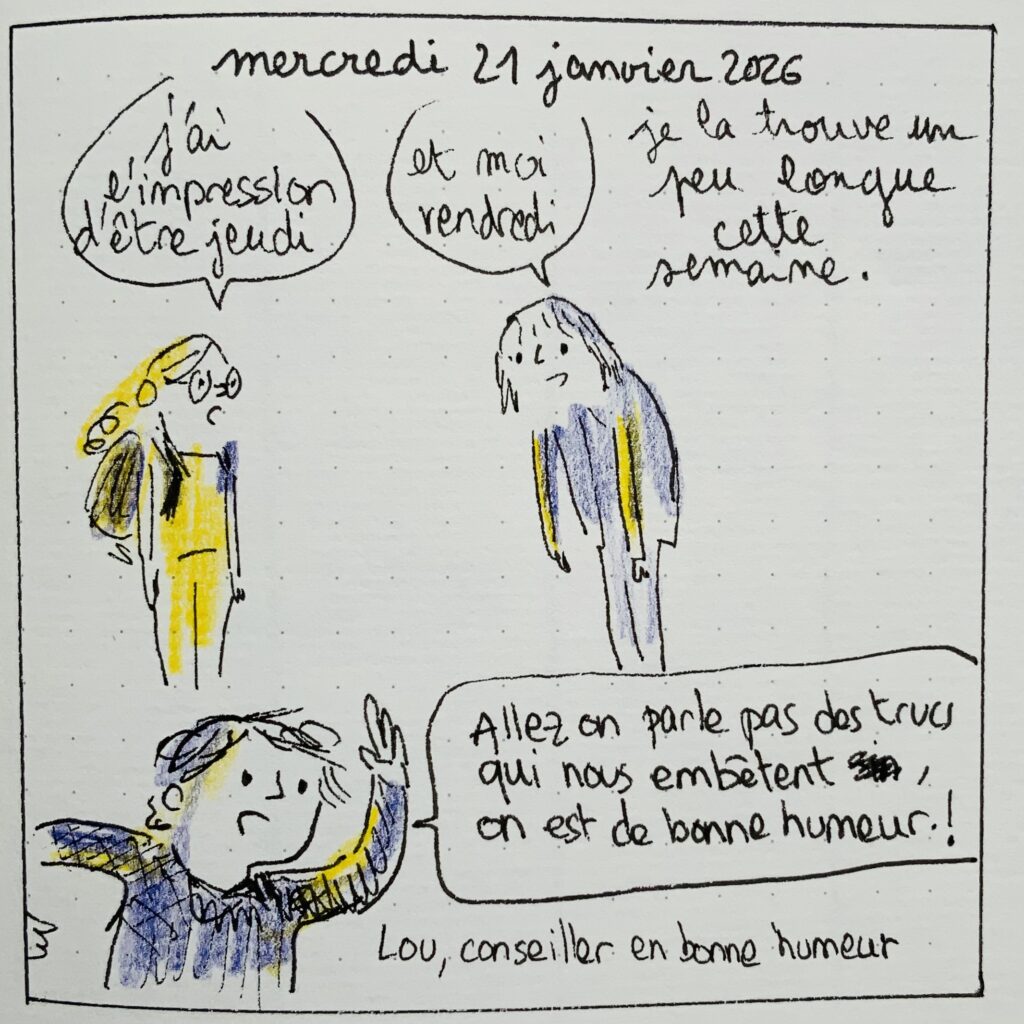 mercredi 21 janvier 2026
j'ai
l'impression
d'être jeudi
et moi
vendredi
je la trouve un
peu longue
cette
semaine.
Allez on parle pas des trucs
qui nous embêtent ,
on est de bonne humeur !
Lou, conseiller en bonne humeur